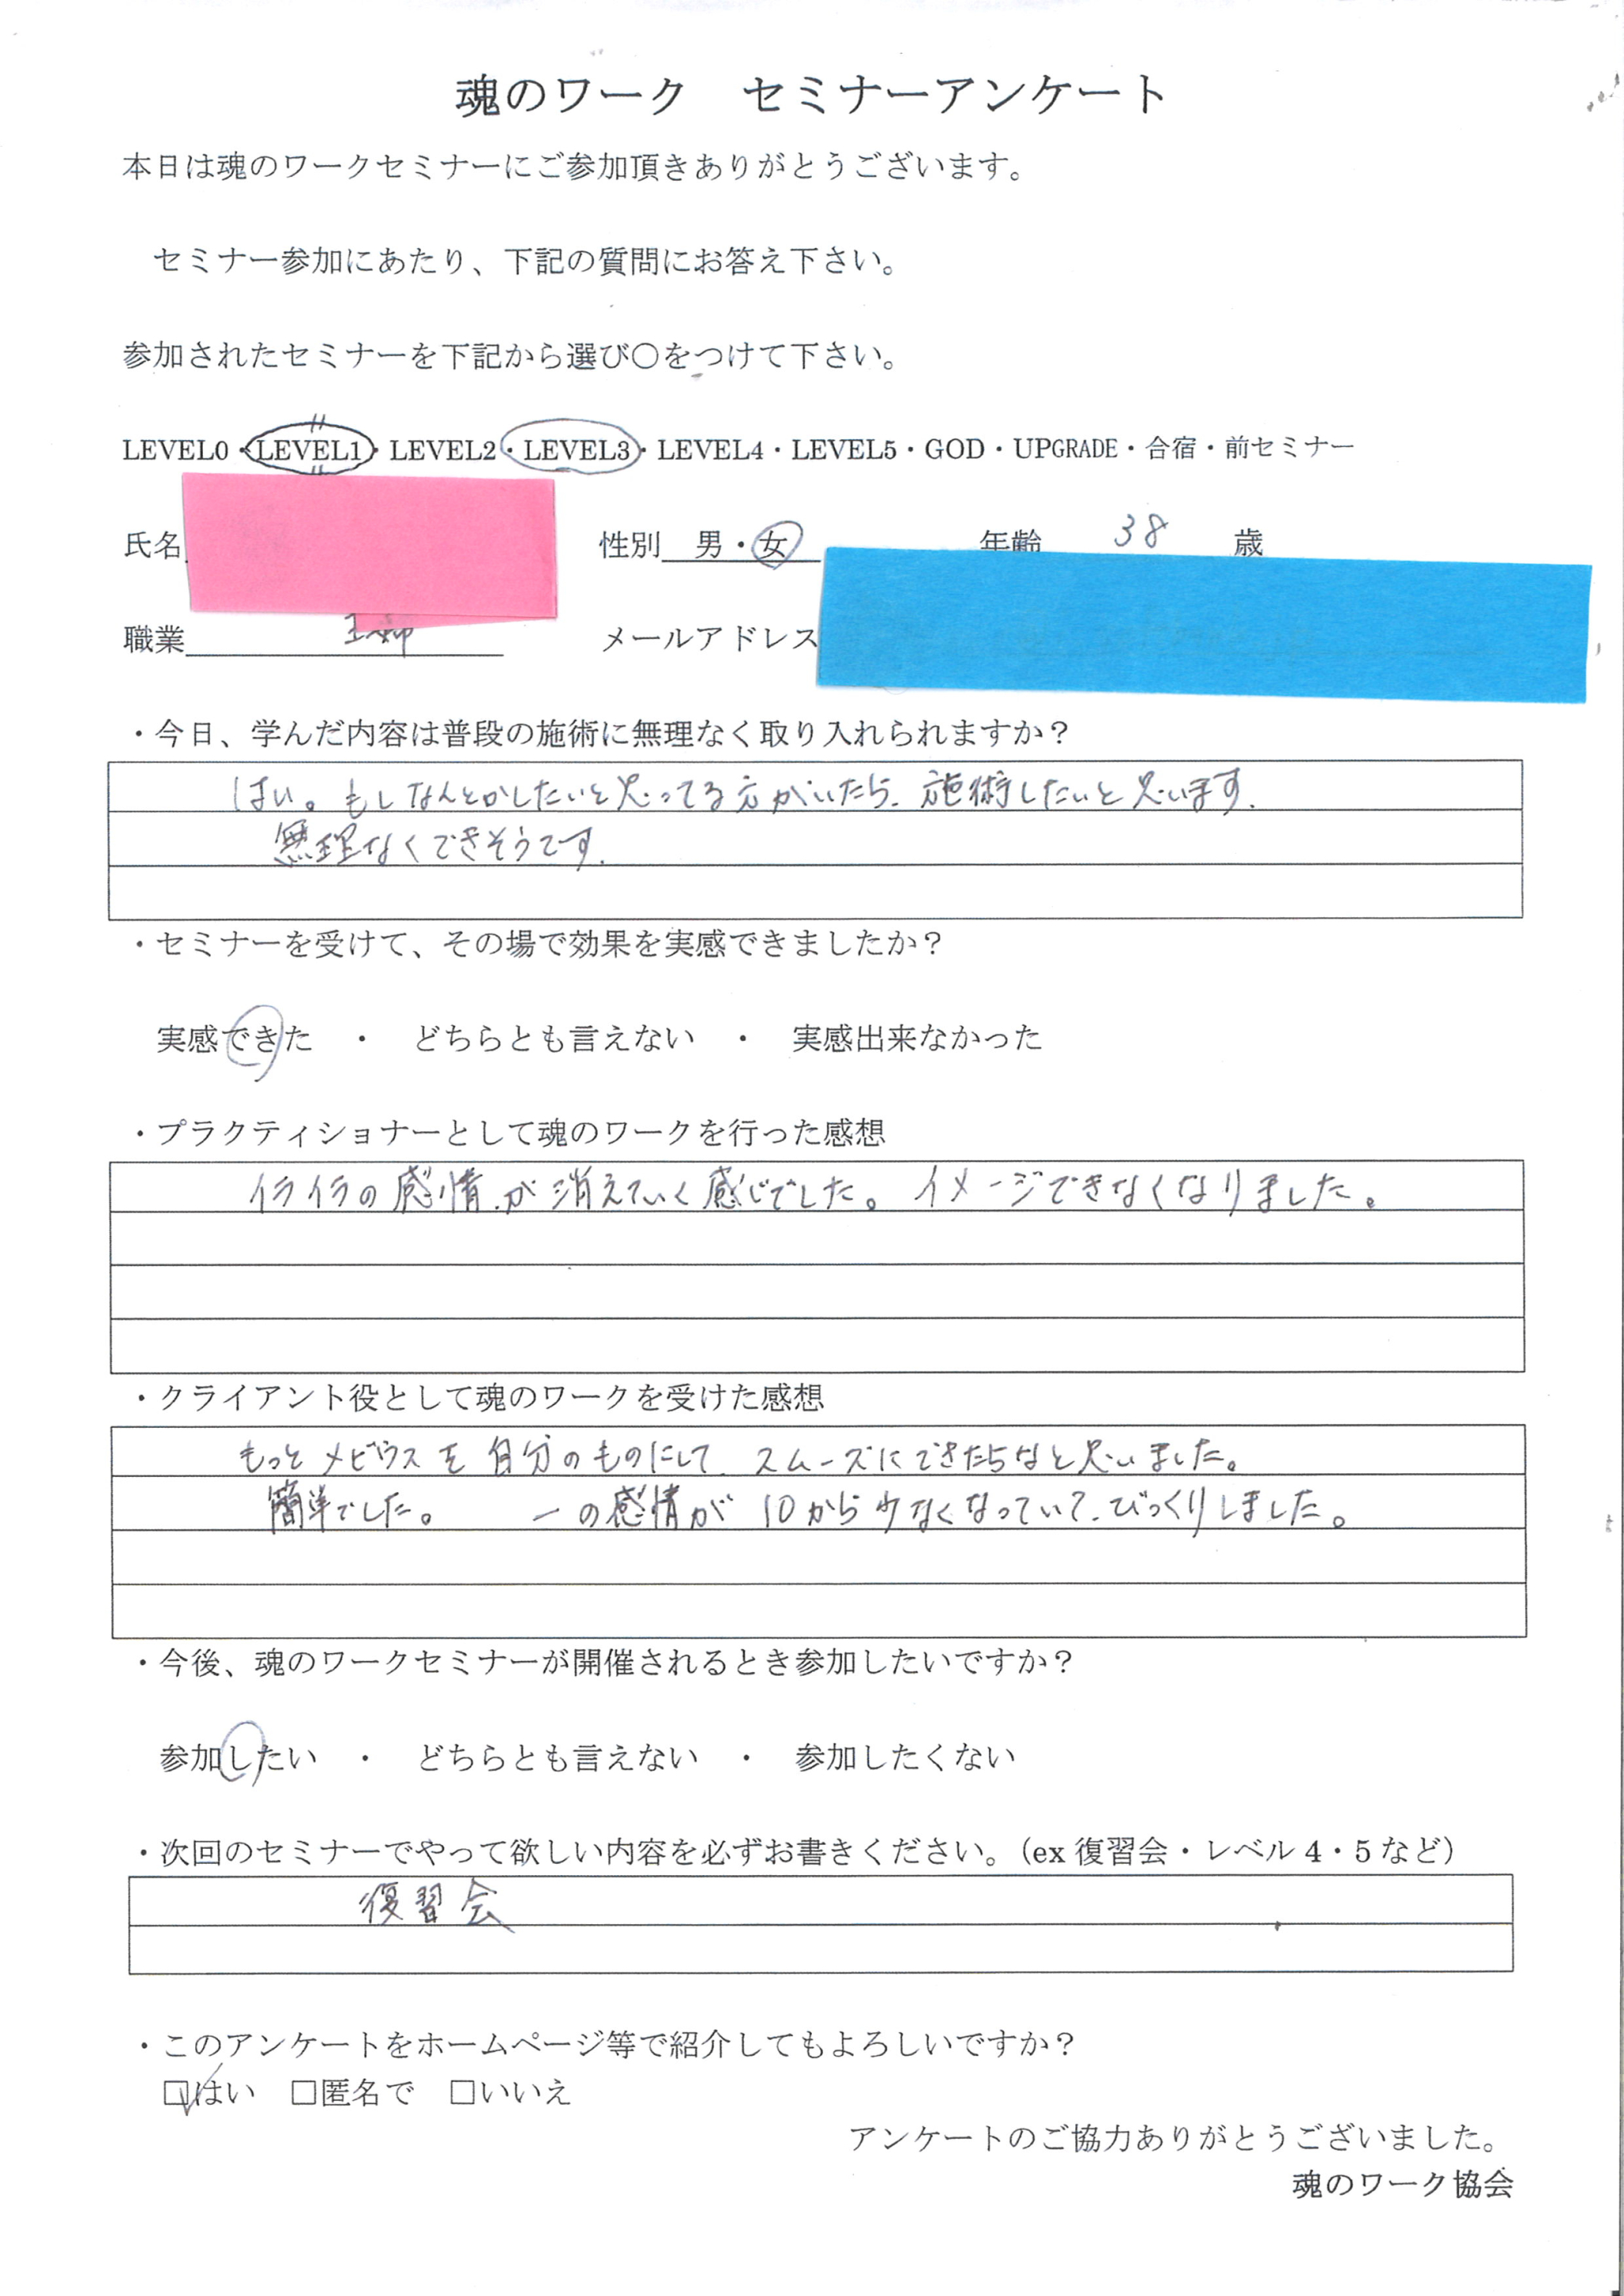 魂のワーク　セミナーアンケート
本日は魂のワークセミナーにご参加頂きありがとうございます。
セミナー参加にあたり、下記の質問にお答え下さい。
参加されたセミナーを下記から選び〇をつけて下さい。
LEVEL0・LEVEL1・LEVEL2・LEVEL3・LEVEL4・LEVEL5・GOD・UPGRADE・合宿・前セミナー
氏名　性別　男・女　年齢　38　歳
職業　メールアドレス
・今日、学んだ内容は普段の施術に無理なく取り入れられますか？
はい。もしなんとかしたいと思ってる方がいたら、施術したいと思います。
無理なくできそうです。
・セミナーを受けて、その場で効果を実感できましたか？
実感できた　・　どちらとも言えない　・　実感出来なかった
・プラクティショナーとして魂のワークを行った感想
イライラの感情が消えていく感じでした。イメージできなくなりました。
・クライアント役として魂のワークを受けた感想
もっとメビウスを自分のものにして、スムーズにできたらなと思いました。
簡単でした。　ーの感情が10から少なくなっていて、びっくりしました。
・今後、魂のワークセミナーが開催されるとき参加したいですか？
参加したい　・　どちらとも言えない　・　参加したくない
・次回のセミナーでやって欲しい内容を必ずお書きください。（ex 復習会・レベル4・5など）
復習会
・このアンケートをホームページ等で紹介してもよろしいですか？
☑はい　□匿名で　□いいえ
アンケートのご協力ありがとうございました。
魂のワーク協会